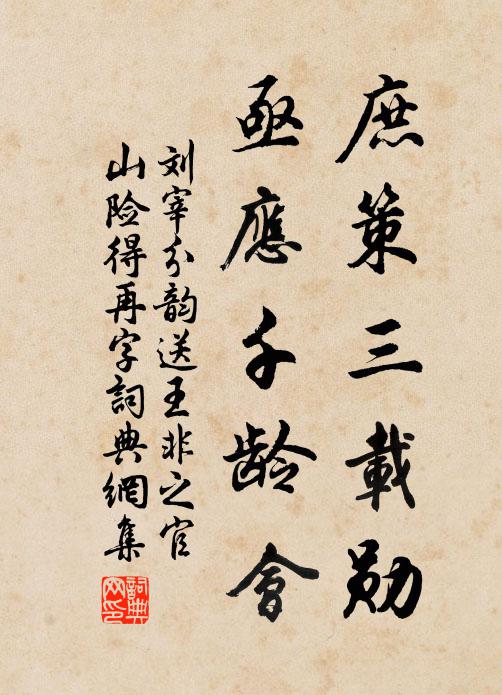 庶策三載勋
亟應千龄會
刘宰分韵送王非之官
山险得再字詞典網集
詞典网印